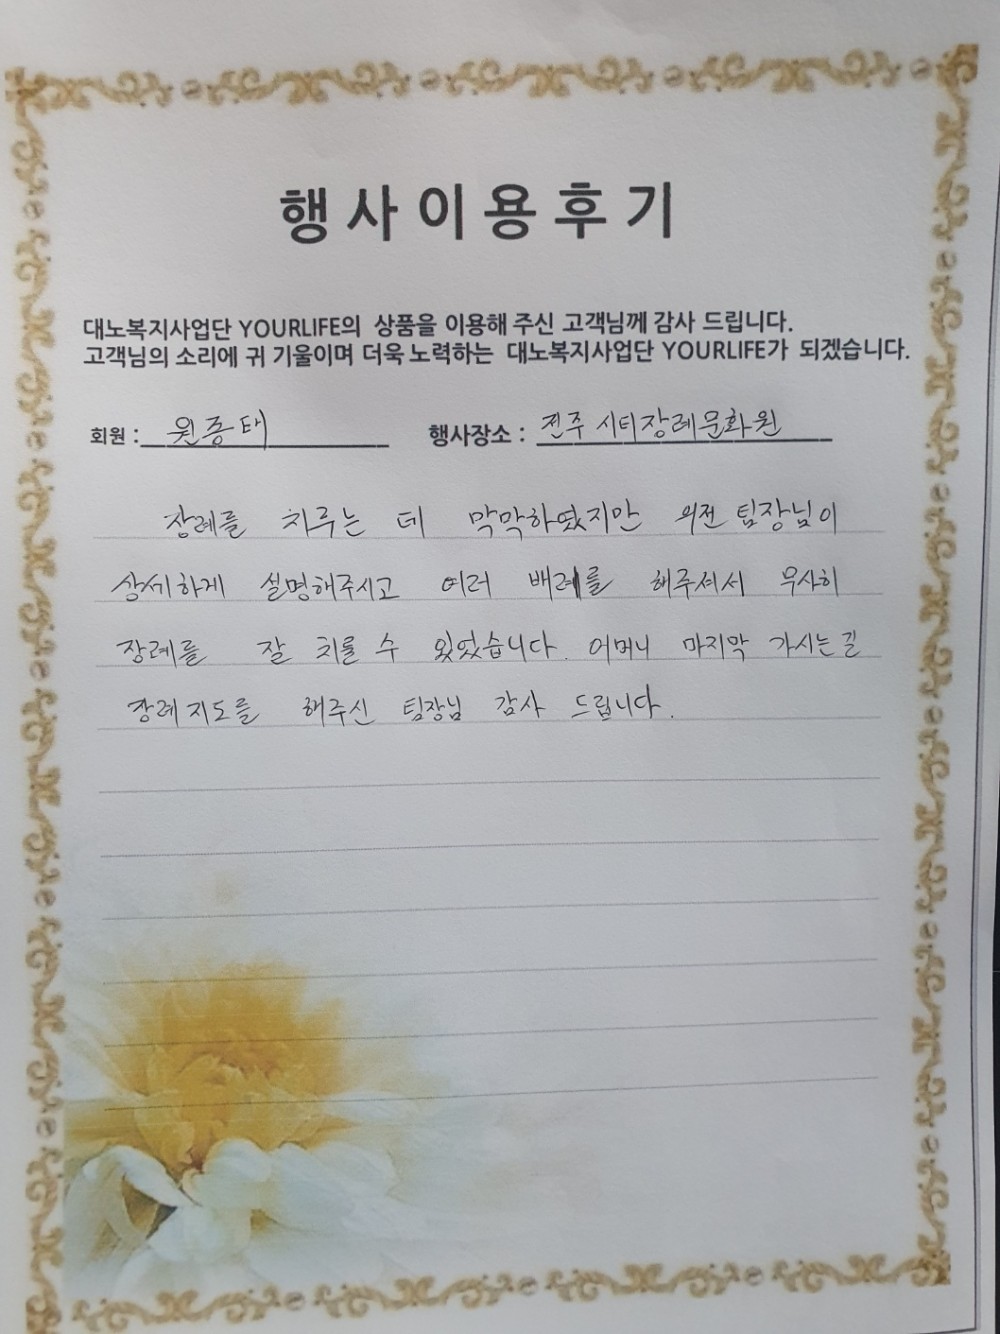 행사이용후기
대노복지사업단 YOURLIFE의 상품을 이용해 주신 고객님께 감사 드립니다.
고객님의 소리에 귀 기울이며 더욱 노력하는 대노복지사업단 YOURLIFE가 되겠습니다.
회원 : 원종태 행사장소 : 전주 시티장례문화원
장례를 치루는 데 막막하였지만 의전 팀장님이
상세하게 설명해주시고 여러 배려를 해주셔서 무사히
장례를 잘 치룰 수 있었습니다. 어머니 마지막 가시는 길
장례지도를 해주신 팀장님 감사 드립니다.